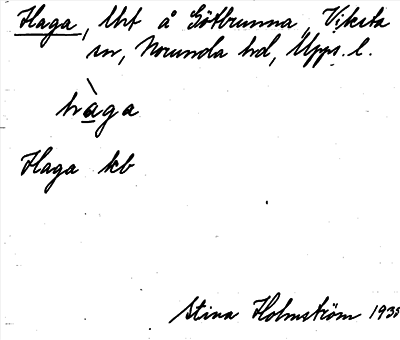 Haga, lht å Götbrunna, Viksta
sn, Norunda hd, Upps. l.
hàga
Haga kb
Stina Holmström 1935